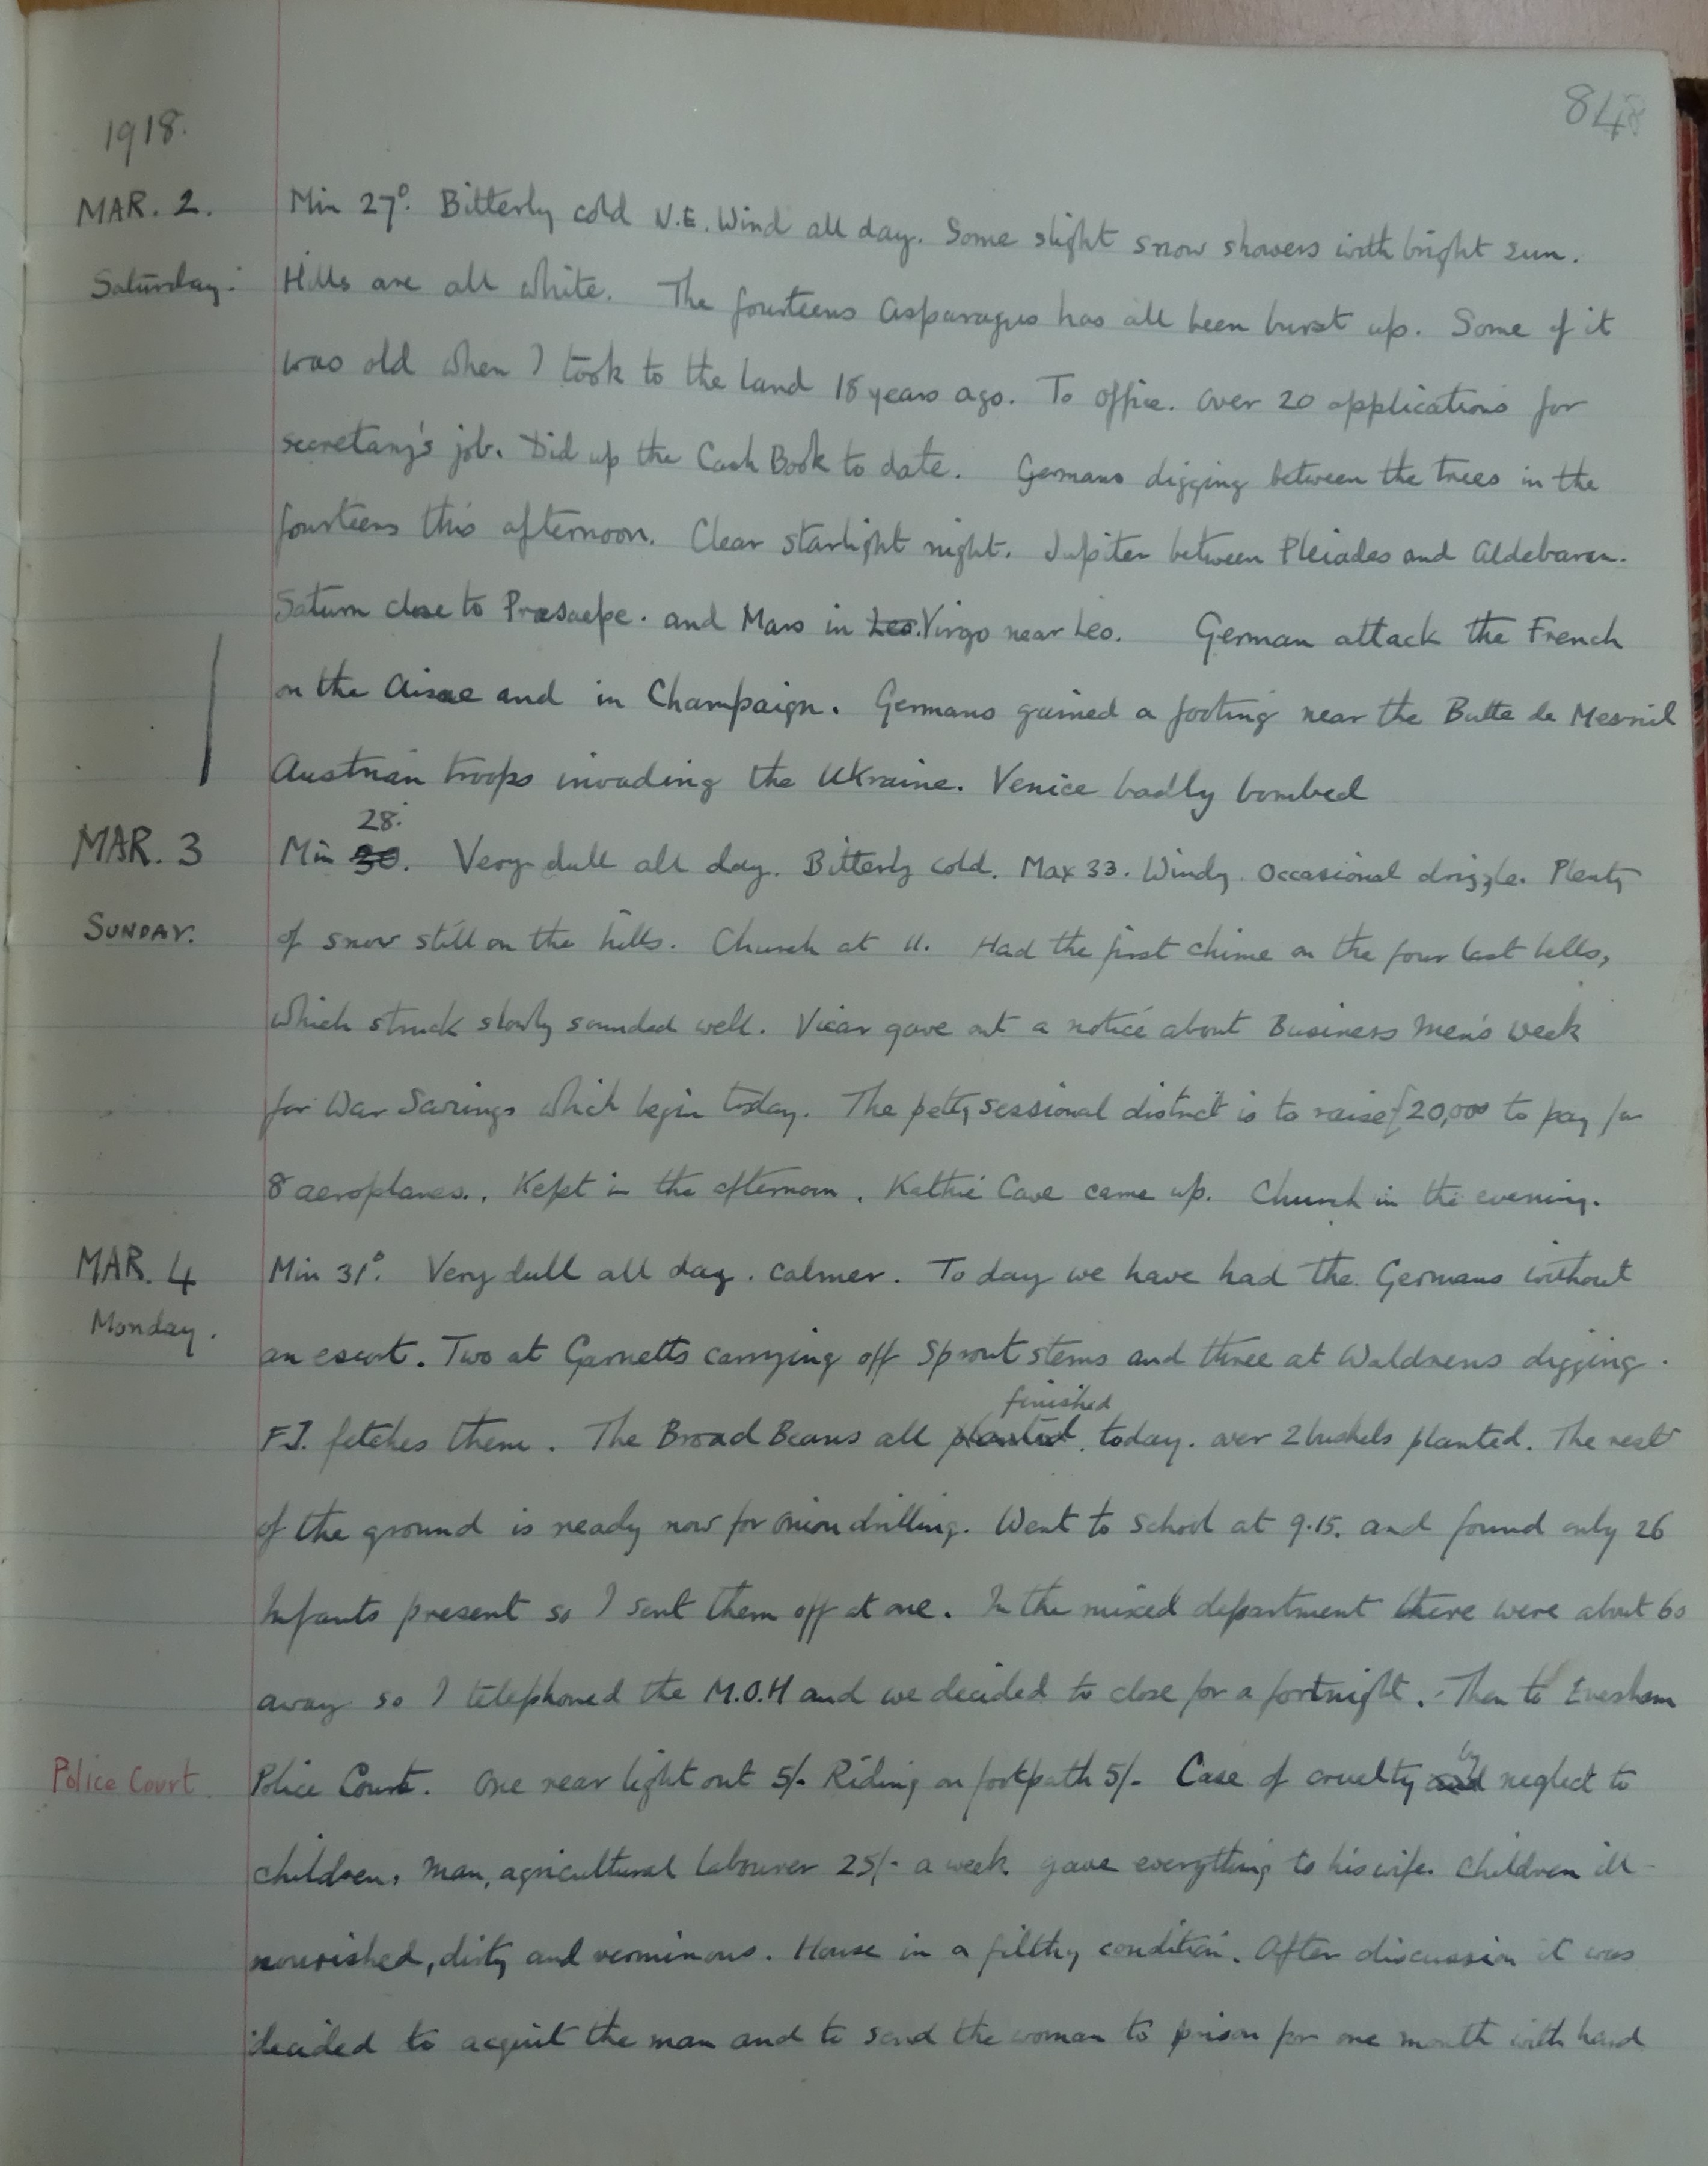 848
1918.
MAR. 2.
Saturday.
Min 27°. Bitterly cold N.E. Wind all day. Some slight snow showers with bright sun.
Hills are all white. The fourteens Asparagus has all been burst up. Some of it
was old when I took to the land 18 years ago. To office. Over 20 applications for
secretary's job. Did up the Cash Book to date. Germans digging between the trees in the
fourteens this afternoon. Clear starlight night. Jupiter between Pleiades and Aldebaran.
Saturn close to Præsaepe. and Mars in Leo. Virgo near Leo. German attack the French
on the Aisne and in Champaign. Germans gained a footing near the Butte de Mesnil
Austrian troops invading the Ukraine. Venice badly bombed
MAR. 3
SUNDAY.
28.
Min 30. Very dull all day. Bitterly cold. Max 33. Windy. Occasional drizzle. Plenty
of snow still on the hills. Church at 11. Had the first chime on the four last bells,
which struck slowly sounded well. Vicar gave out a notice about Business Men's Week
for War Savings which begin today. The petty sessional district is to raise £20,000 to pay for
8 aeroplanes. Kept in the afternoon. Kathie Cave came up. Church in the evening.
MAR. 4
Monday.
Min 31°. Very dull all day. Calmer. To day we have had the Germans without
an escort. Two at Garnetts carrying off Sprout stems and three at Waldrens digging.
finished
F.J. fetches them. The Broad Beans all planted today. over 2 bushels planted. The rest
of the ground is ready now for onion drilling. Went to School at 9.15. and found only 26
Infants present so I sent them off at one. In the mixed department there were about 60
away so I telephoned the M.O.H and we decided to close for a fortnight. Then to Evesham
Police Court.
by
Police Court. One rear light out 5/- Riding on footpath 5/- Case of cruelty and neglect to
children. Man, agricultural labourer 25/- a week gave everything to his wife. Children ill
nourished, dirty and verminous. House in a filthy condition. After discussion it was
decided to acquit the man and to send the woman to prison for one month with hard